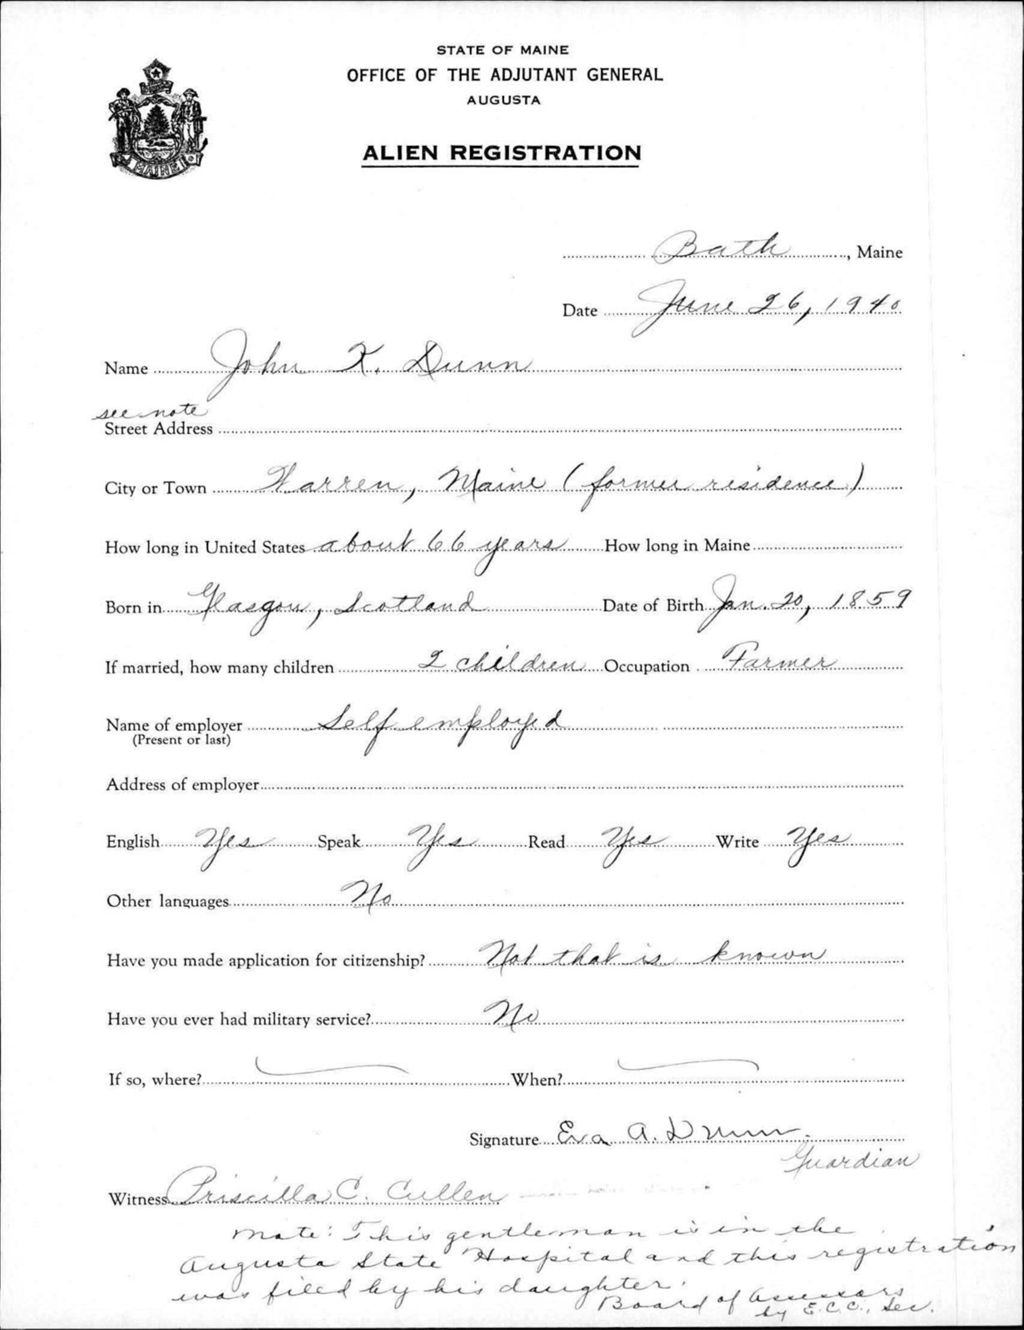 STATE OF MAINE
OFFICE OF THE ADJUTANT GENERAL
AUGUSTA
ALIEN REGISTRATION
MAINE
Bath, Maine
Date June 26, 1940
Name John K. Dunn
see note
Street Address
City or Town Warren, Maine (former residence)
How long in United States about 66 years How long in Maine
Born in Glasgow, Scotland Date of Birth Jan. 20, 1859
If married, how many children 2 children Occupation Farmer
Name of employer Self employed
(Present or last)
Address of employer
English Yes Speak Yes Read Yes Write Yes
Other languages No
Have you made application for citizenship? Not that is known
Have you ever had military service? No
If so, where? When?
Signature Eva A. Dunn
Guardian
Witness Priscilla C. Cullen
Note: This gentleman is in the
Augusta State Hospital and this registration
was filed by his daughter.
Board of Assessors
by E.C.C., Sec.